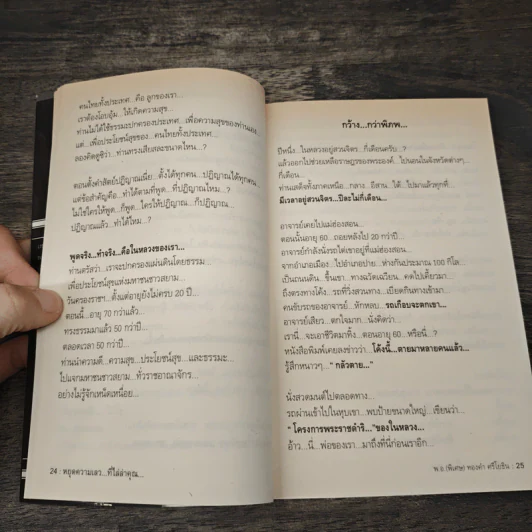 คนไทยทั้งประเทศ...คือ ลูกของเรา...
เราต้องโอบอุ้ม...ให้เกิดความสุข...
ท่านไม่ได้ใช้ธรรมะปกครองประเทศ...เพื่อความสุขของท่านเอง
แต่...เพื่อประโยชน์สุขของ...คนไทยทั้งประเทศ...
ลองคิดดูซิว่า...ท่านทรงเสียสละขนาดไหน...?
ตอนตั้งคำสัตย์ปฏิญาณเนี่ย...ตั้งได้ทุกคน...ปฏิญาณได้ทุกคน...
แต่ข้อสำคัญคือ...ทำได้ตามที่พูด...ที่ปฏิญาณไหม...?
ไม่ใช่ใครให้พูด...ก็พูด...ใครให้ปฏิญาณ...ก็ปฏิญาณ...
ปฏิญาณแล้ว...ทำได้ไหม...?
พูดจริง...ทำจริง...คือในหลวงของเรา...
ท่านตรัสว่า...เราจะปกครองแผ่นดินโดยธรรม...
เพื่อประโยชน์สุขแห่งมหาชนชาวสยาม...
วันครองราชฯ...ตั้งแต่อายุยังไม่ครบ 20 ปี...
ตอนนี้...อายุ 70 กว่าแล้ว...
ทรงธรรมมาแล้ว 50 กว่าปี...
ตลอดเวลา 50 กว่าปี...
ท่านนำความดี...ความสุข...ประโยชน์สุข...และธรรมะ...
ไปแจกมหาชนชาวสยาม...ทั่วราชอาณาจักร...
อย่างไม่รู้จักเหน็ดเหนื่อย...
24 : หยุดความเลว...ที่ไล่ล่าคุณ...
กว้าง...กว่าพิภพ...
ปีหนึ่ง...ในหลวงอยู่สวนจิตร...กี่เดือนครับ...?
แล้วออกไปช่วยเหลือราษฎรของพระองค์...ไปนอนในจังหวัดต่างๆ...
กี่เดือน...
ท่านเสด็จทั้งภาคเหนือ...กลาง...อีสาน...ใต้...ไปมาแล้วทุกที่
มีเวลาอยู่สวนจิตร...ปีละไม่กี่เดือน...
อาจารย์เคยไปแม่ฮ่องสอน...
ตอนนั้นอายุ 60...ถอยหลังไป 20 กว่าปี...
อาจารย์กำลังนั่งรถไต่เขาอยู่ที่แม่ฮ่องสอน...
จากอำเภอเมือง...ไปอำเภอปาย...ห่างกันประมาณ 100 กิโล...
เป็นถนนดิน...ขึ้นเขา...ทางฉวัดเฉวียน...คดไปเคี้ยวมา...
ถึงตรงทางโค้ง...รถที่วิ่งสวนทาง...เบียดกันเข้าข้างมา
คนขับรถของอาจารย์...หักหลบ...รถเกือบจะตกเขา...
อาจารย์เสียว...ตกใจมาก...นั่งคิดว่า...
เรานี่...จะเอาชีวิตมาทิ้ง...ตอนอายุ 60...หรือนี่...?
หนังสือพิมพ์เคยลงข่าวว่า...โค้งนี้...ตายมาหลายคนแล้ว...
รู้สึกหนาวๆ..." กลัวตาย..."
นั่งสวดมนต์ไปตลอดทาง...
รถผ่านเข้าไปในหุบเขา...พบป้ายขนาดใหญ่...เขียนว่า...
" โครงการพระราชดำริ..."ของในหลวง...
อ้าว...นี่...พ่อของเรา...มาถึงที่นี่ก่อนเราอีก...
พ.อ.(พิเศษ) ทองคำ ศรีโยธิน : 25